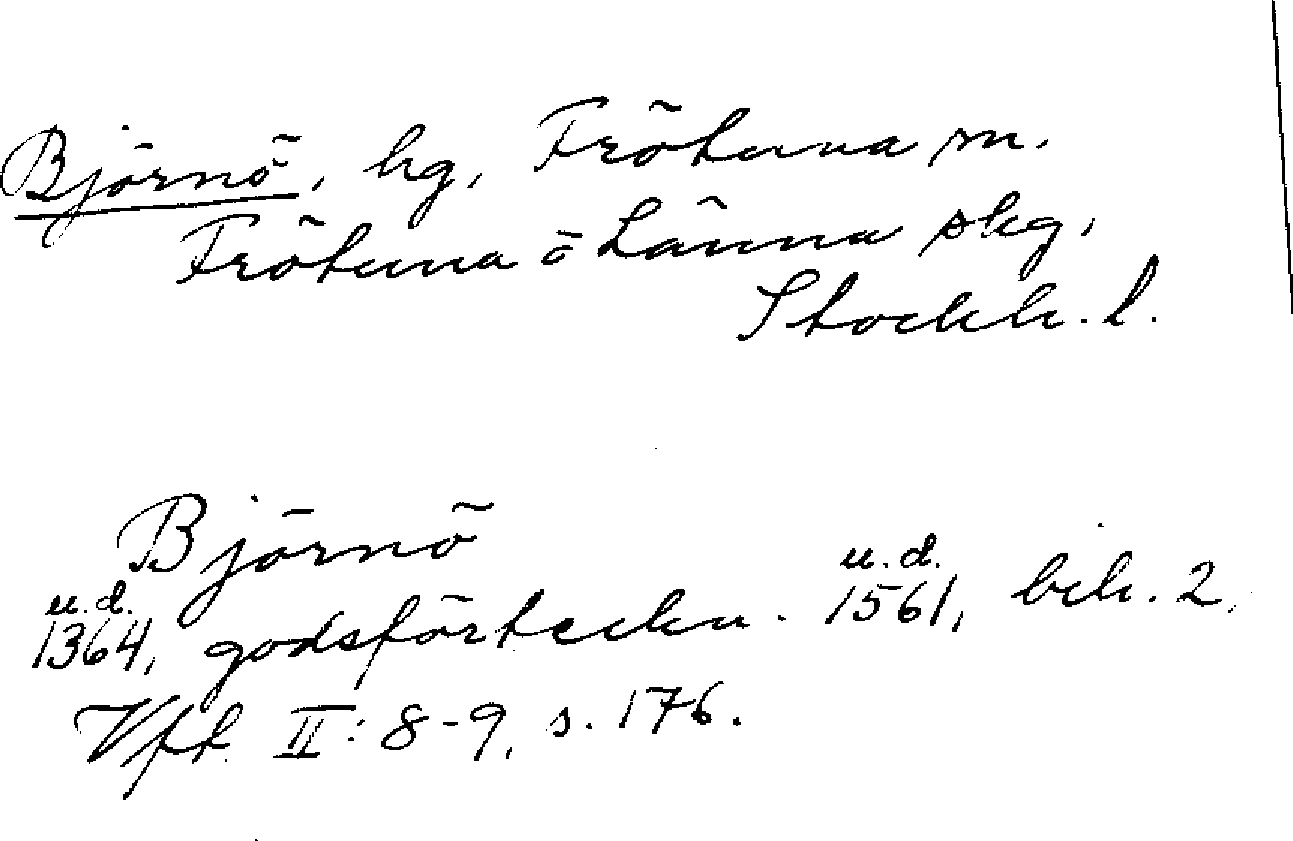 Björnö, hg, Frötuna sn.
Frötuna o Länna skg.
Stockh. l.
Björnö
u.d. 1364, godsförteckn. u.d. 1561, bih. 2,
Vft II: 8-9, s. 176.